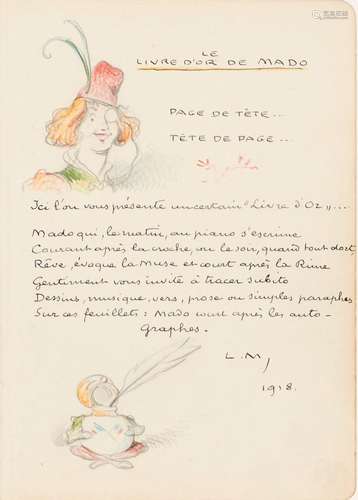 LE
LIVRE D'OR DE MADO
PAGE DE TÊTE...
TÊTE DE PAGE...
Ici l'on vous présente un certain "Livre d'Or"....
Mado qui, le matin, au piano s'escrime
Courant après la croche, ou le son, quand tout dort,
Rêve, évoque la Muse et court après la Rime
Gentiment vous invite à tracer subito
Dessins, musique, vers, prose ou simples paraphes
Sur ces feuillets : Mado court après les auto-
Graphes.
L. M.
1918.